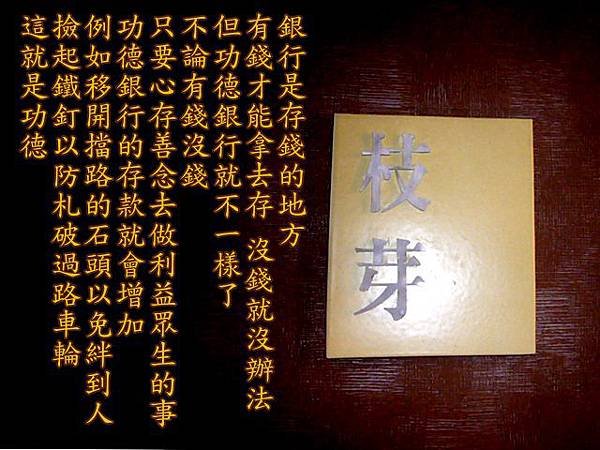 銀行是存錢的地方
有錢才能拿去存 沒錢就沒辦法
但功德銀行就不一樣了
不論有錢沒錢
只要心存善念去做利益眾生的事
功德銀行的存款就會增加
例如移開擋路的石頭以免絆到人
撿起鐵釘以防札破過路車輪
這就是功德
枝芽